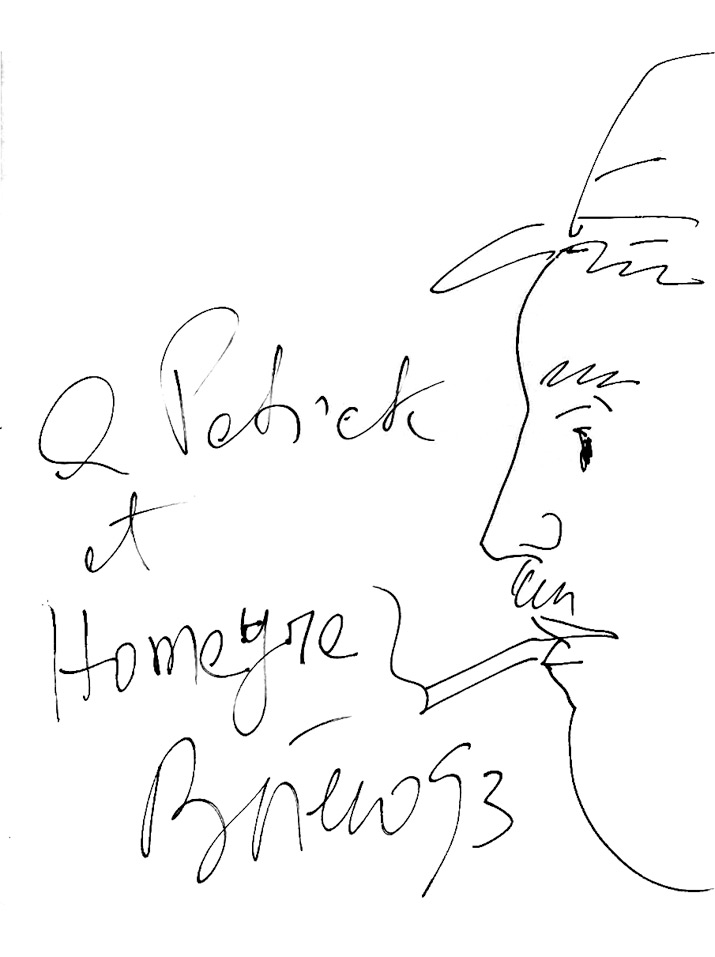 a Patrick
et
Homeyre
93